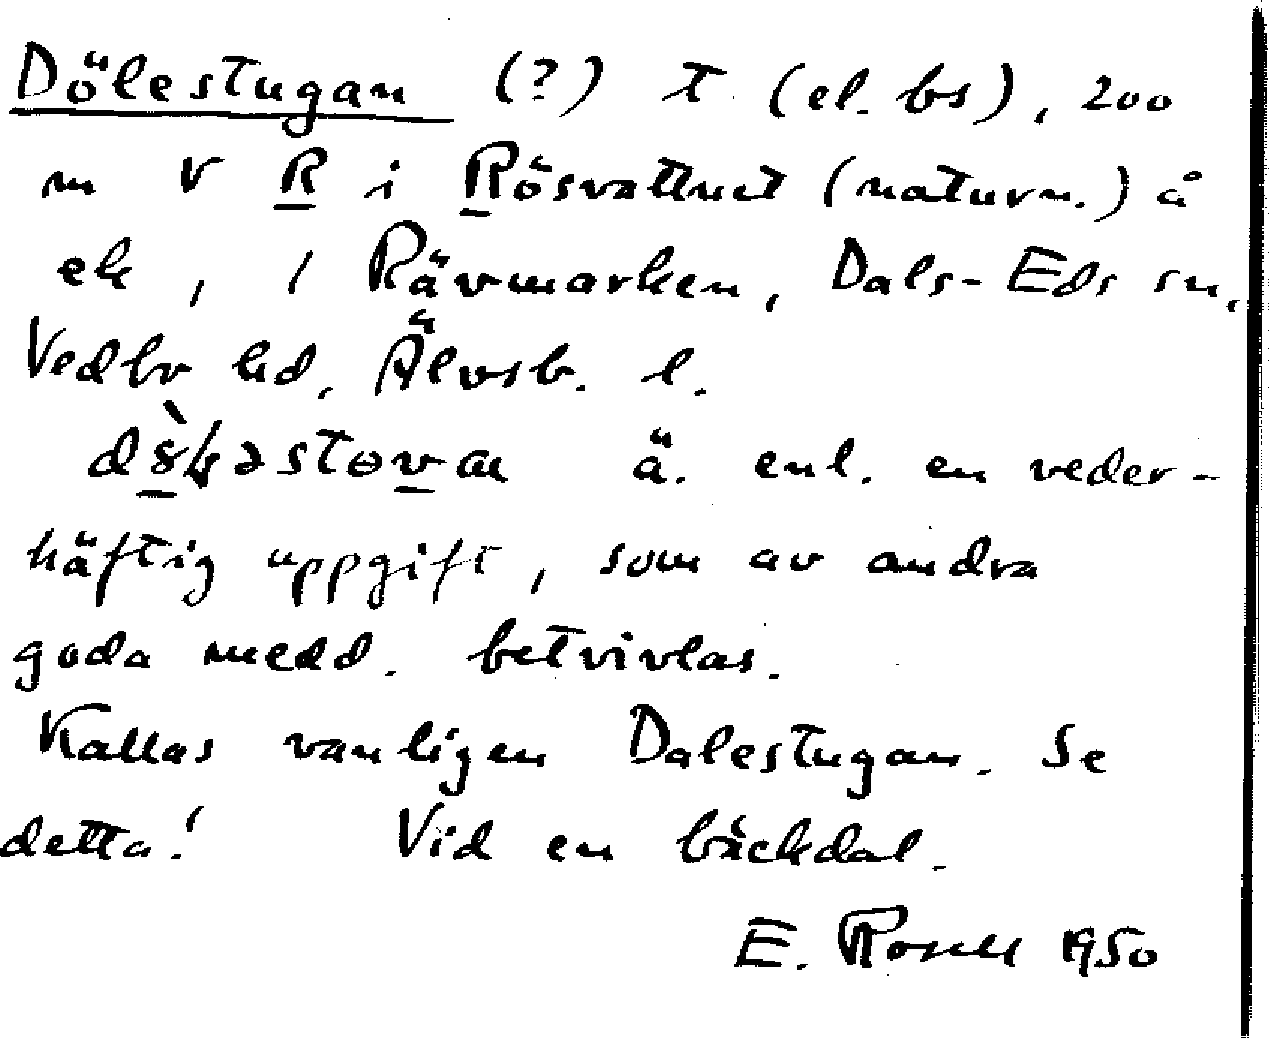 Dölestugan (?) t. (el. bs), 200
m V R i Rösvattnet (naturn.) å
ek, i Rävmarken, Dals-Eds sn,
Vedbo hd, Älvsb. l.
ä. enl. en veder-
häftig uppgift, som av andra
goda medd. betvivlas.
Kallas vanligen Dalestugan. Se
detta! Vid en bäckdal.
E. Rosell 1950